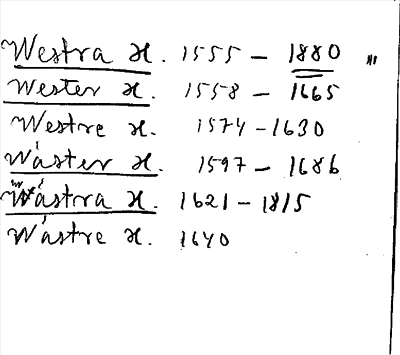 Westra H. 1555 - 1880 "
Wester H. 1558 - 1665
Westre H. 1574 - 1630
Wáster H. 1597 - 1686
Wástra H. 1621 - 1815
Wástre H. 1640